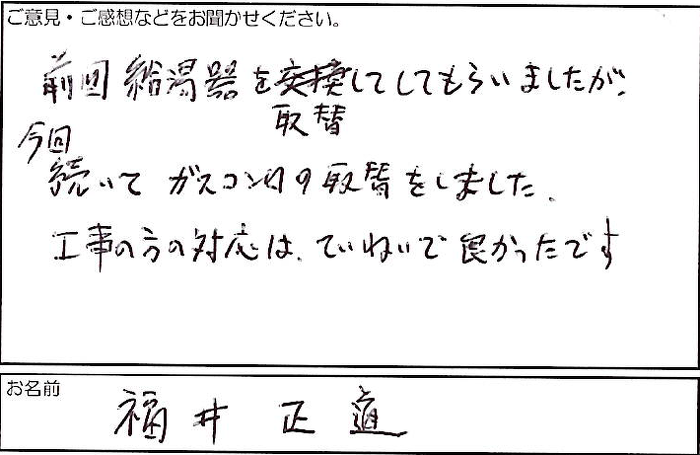 ご意見・ご感想などをお聞かせください。
前回 給湯器を交換してしてもらいましたが、
取替
今回
続いて ガスコンロの取替をしました。
工事の方の対応は、ていねいで良かったです
お名前
福井 正